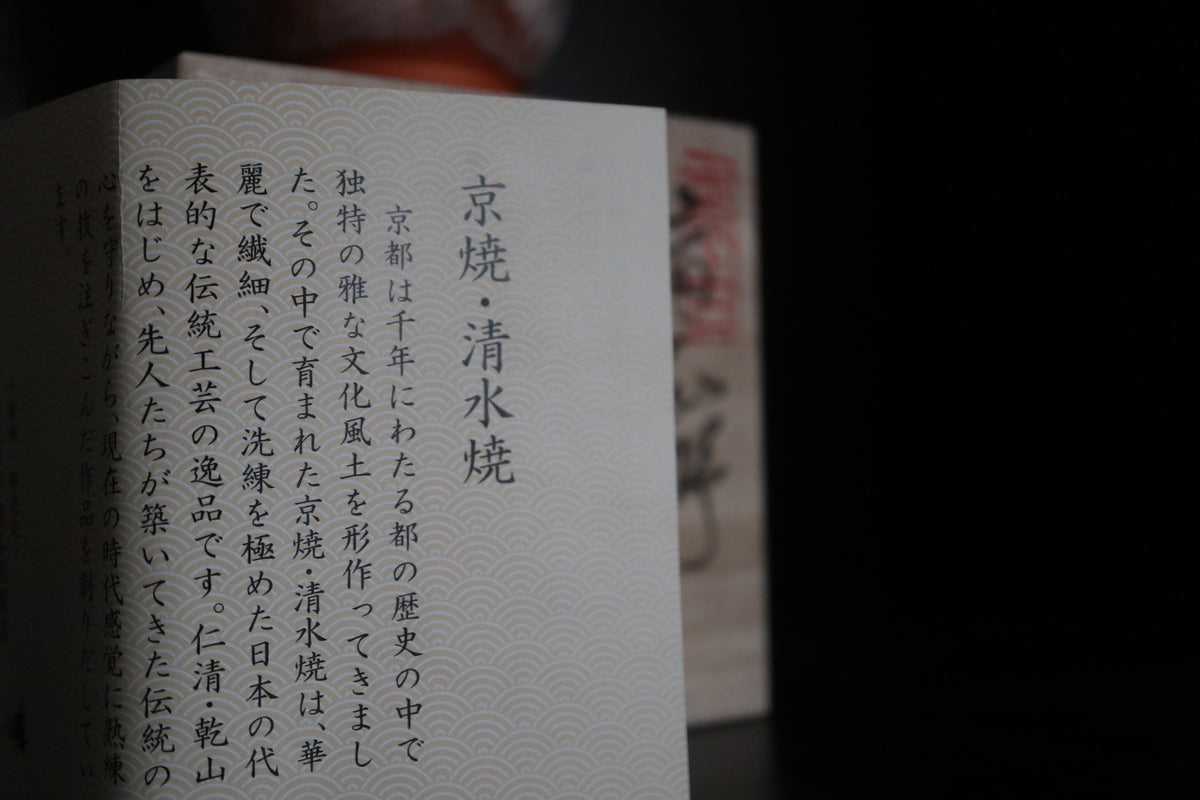 京焼・清水焼
京都は千年にわたる都の歴史の中で
独特の雅な文化風土を形作ってきまし
た。その中で育まれた京焼・清水焼は、華
麗で繊細、そして洗練を極めた日本の代
表的な伝統工芸の逸品です。仁清・乾山
をはじめ、先人たちが築いてきた伝統の
心を守りながら、現在の時代感覚に熟練
の技を注ぎこんだ作品を創りだしてい
ます。